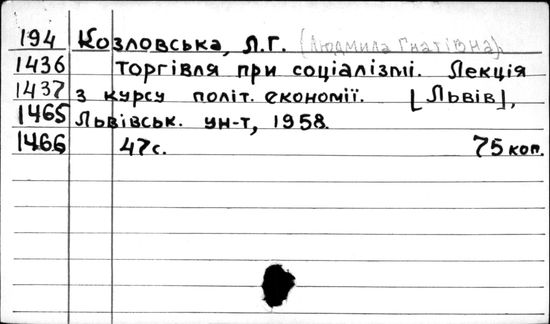 194 Козловська, Л.Г. (Людмила Гнатівна).
1436 Торгівля при соціалізмі. Лекція
1437 з курсу політ. економії. [Львів],
1465 Львівськ. ун-т, 1958.
1466 47с. 75 коп.